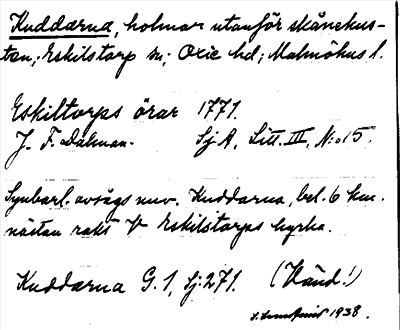 Kuddarna, holmar utanför skånekus-
ten; Eskilstorp sn; Oxie hd; Malmöhus l.
Eskiltorps örar 1771.
J. F. Dalman. SjA, Litt. III, N:o 15.
Synbarl. avsågs nuv. Kuddarna, bel. 6 km.
nästan rakt V Eskilstorps kyrka.
Kuddarna G. 1, Sj. 271. (Vänd!)
1938.